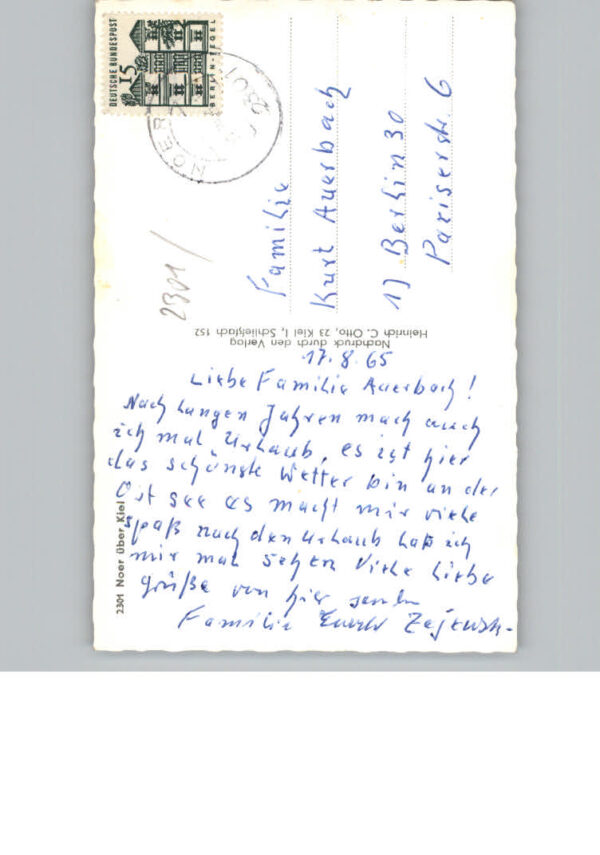 DEUTSCHE BUNDESPOST
15
BERLIN-TEGEL
NOER
2301
2301
Familie
Kurt Auerbach
1) Berlin 30
Pariserstr. 6
Nachdruck durch den Verlag
Heinrich C. Otto, 23 Kiel 1, Schließfach 152
2301 Noer über Kiel
17.8.65
Liebe Familie Auerbach!
Nach langen Jahren mach auch
ich mal Urlaub, es ist hier
das schönste Wetter bin an der
Ost see es macht mir viele
spaß nach den Urlaub laß ich
mir mal sehen Viele Liebe
grüße von hier senden
Familie Ewald